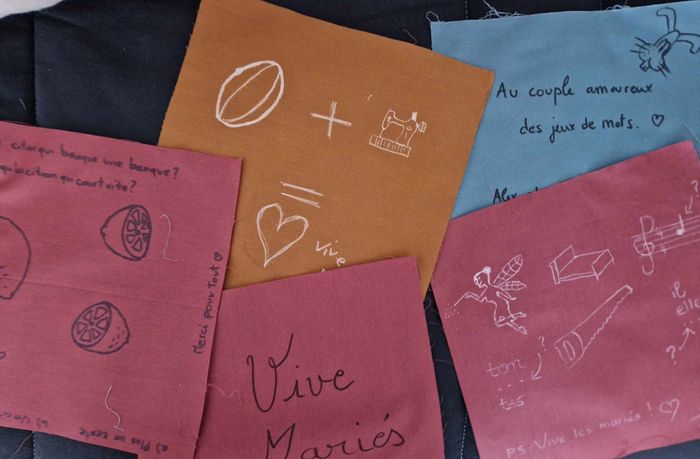 citron qui braque une banque?
citron qui court vite?
Merci pour tout
a) Plus un zeste
+
=
Vive
Au couple amoureux
des jeux de mots.
Vive
Mariés
ton
?
tes
il
elle
?
?
PS: Vive les mariés!